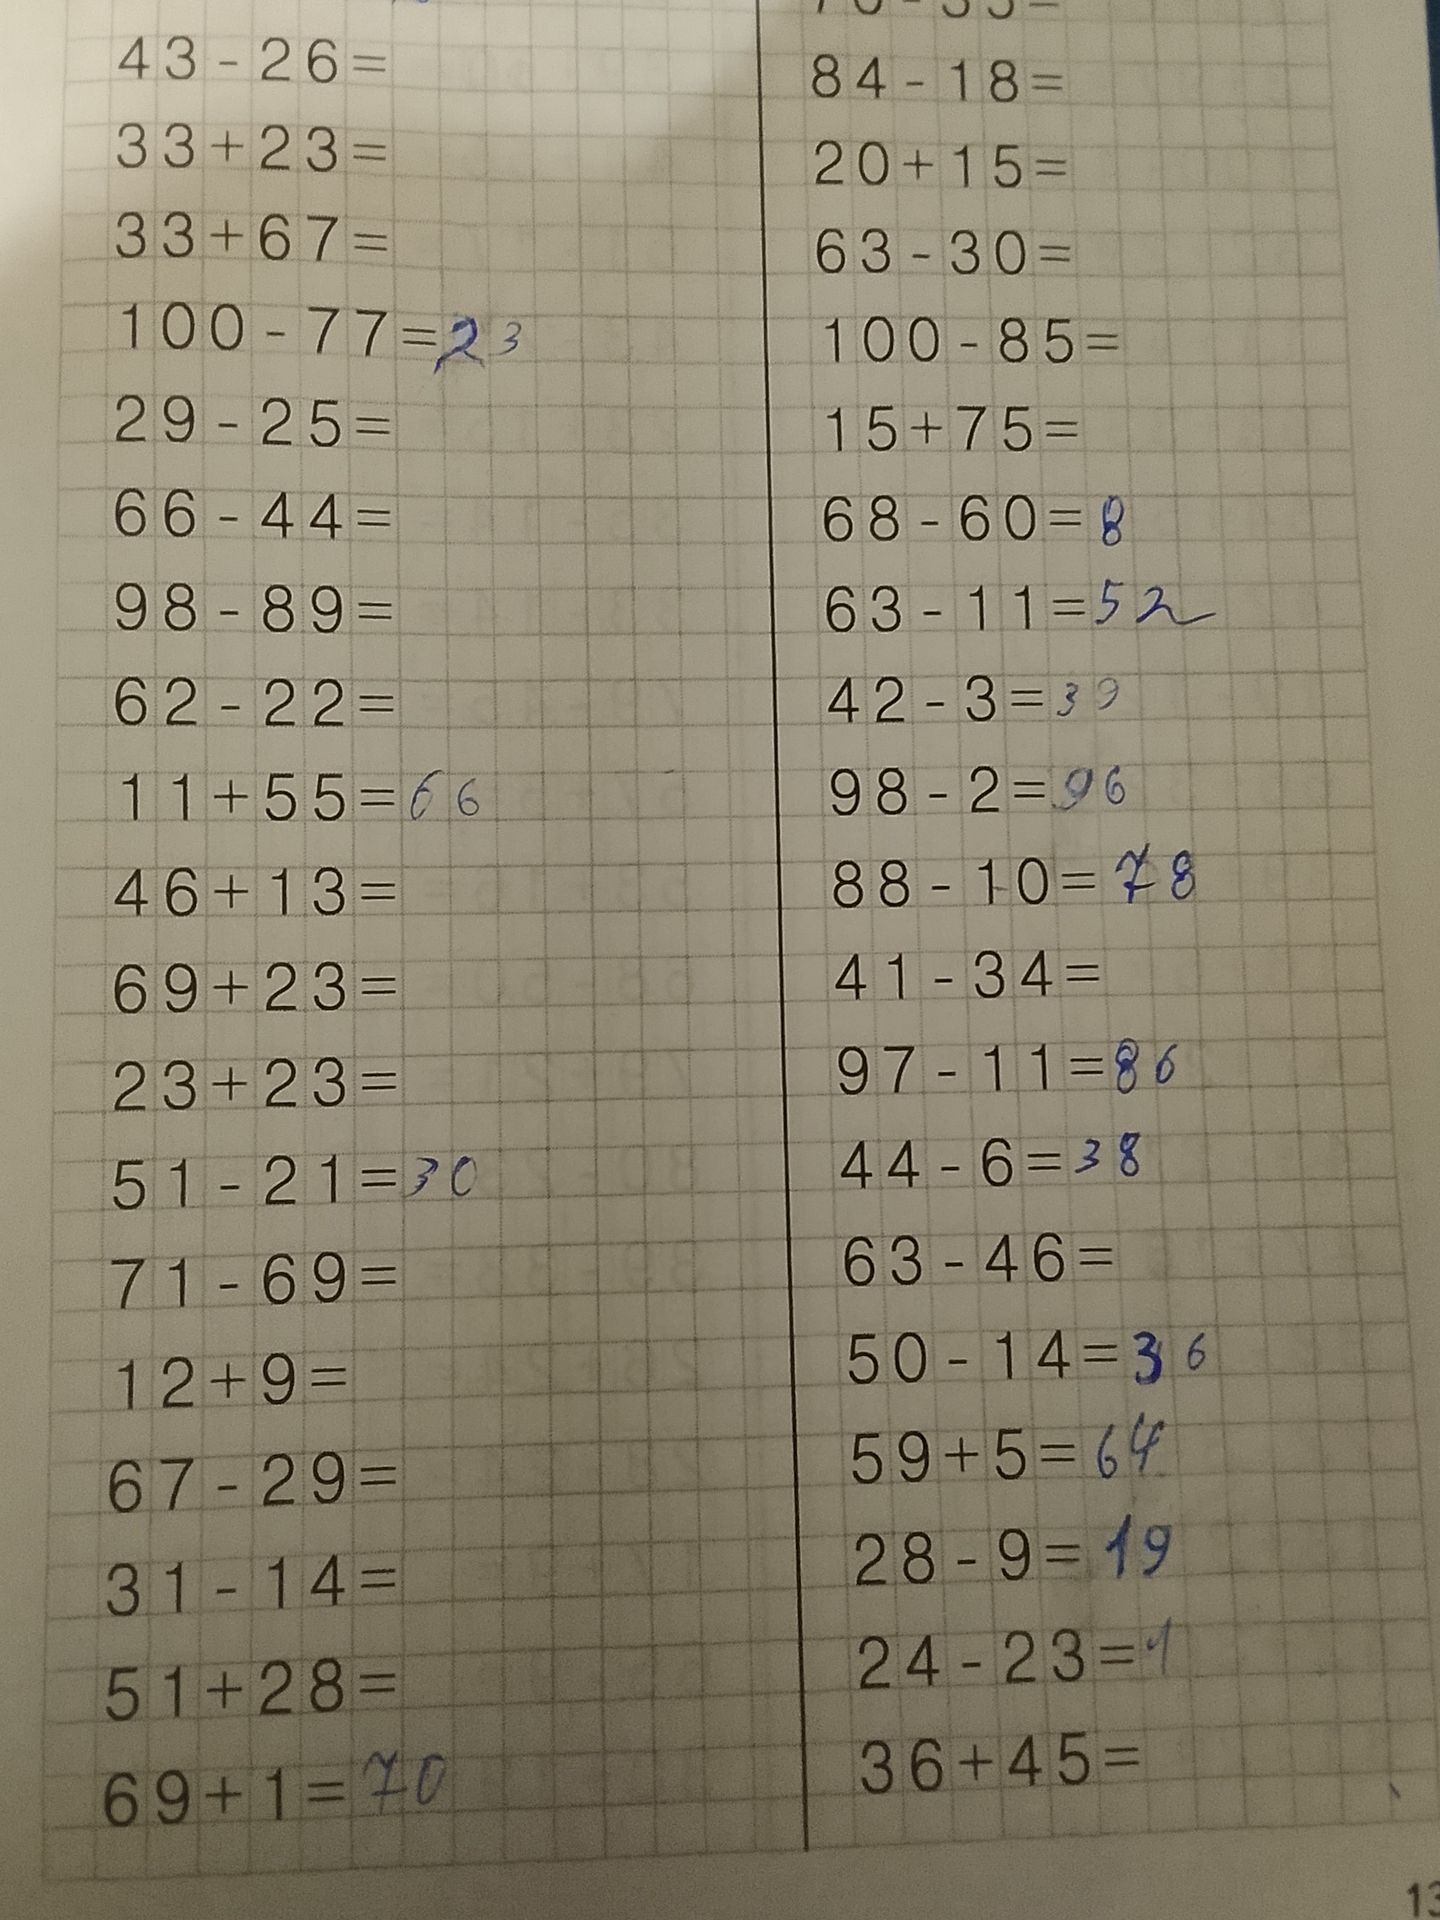 43-26=
33+23=
33+67=
100-77=23
29-25=
66-44=
98-89=
62-22=
11+55=66
46+13=
69+23=
23+23=
51-21=30
71-69=
12+9=
67-29=
31-14=
51+28=
69+1=70
84-18=
20+15=
63-30=
100-85=
15+75=
68-60=8
63-11=52
42-3=39
98-2=96
88-10=78
41-34=
97-11=86
44-6=38
63-46=
50-14=36
59+5=64
28-9=19
24-23=1
36+45=
13